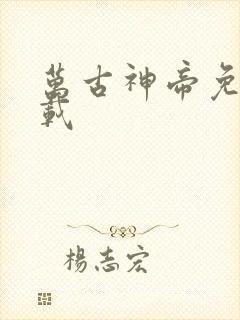 萬古神帝免
載
楊志宏